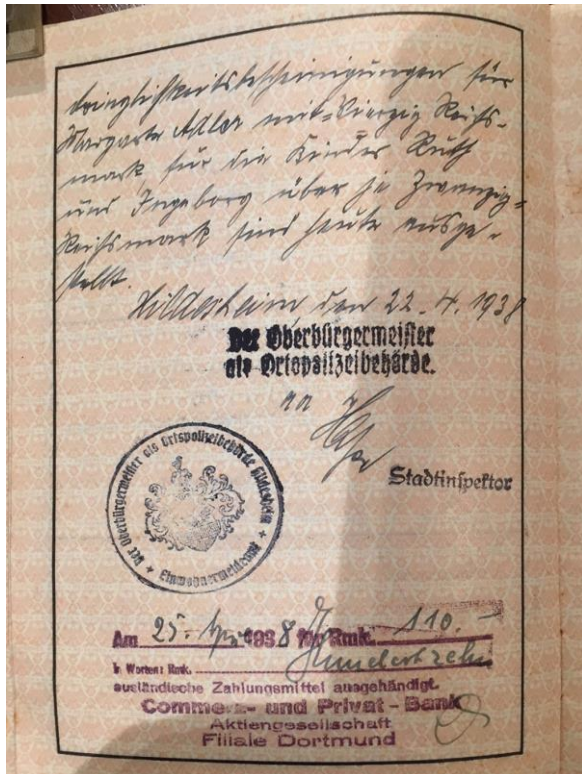 Dringlichkeitsbescheinigungen für
Margarete Adler mit Vierzig Reichs-
mark, für die Kinder Ruth
und Ingeborg über je Zwanzig-
Reichsmark sind heute ausge-
stellt.
Hildesheim, den 22.4.1938
Der Oberbürgermeister
als Ortspolizeibehörde.
Stadtinspektor
Der Oberbürgermeister als Ortspolizeibehörde Hildesheim
* Einwohnermeldeamt *
Am 25. April 1938 für Rmk. 110.-
In Worten: Rmk. Hundertzehn
ausländische Zahlungsmittel ausgehändigt.
Commerz- und Privat-Bank
Aktiengesellschaft
Filiale Dortmund